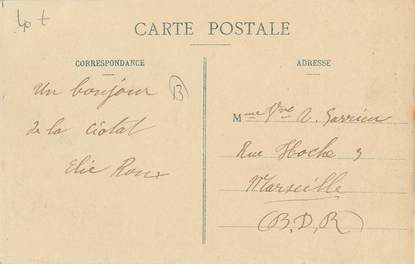 CARTE POSTALE
CORRESPONDANCE
Un bonjour
de la Ciotat
Elie Roux
B
ADRESSE
Mme Vve A. Garrien
Rue Hoche 9
Marseille
(B.D.R)